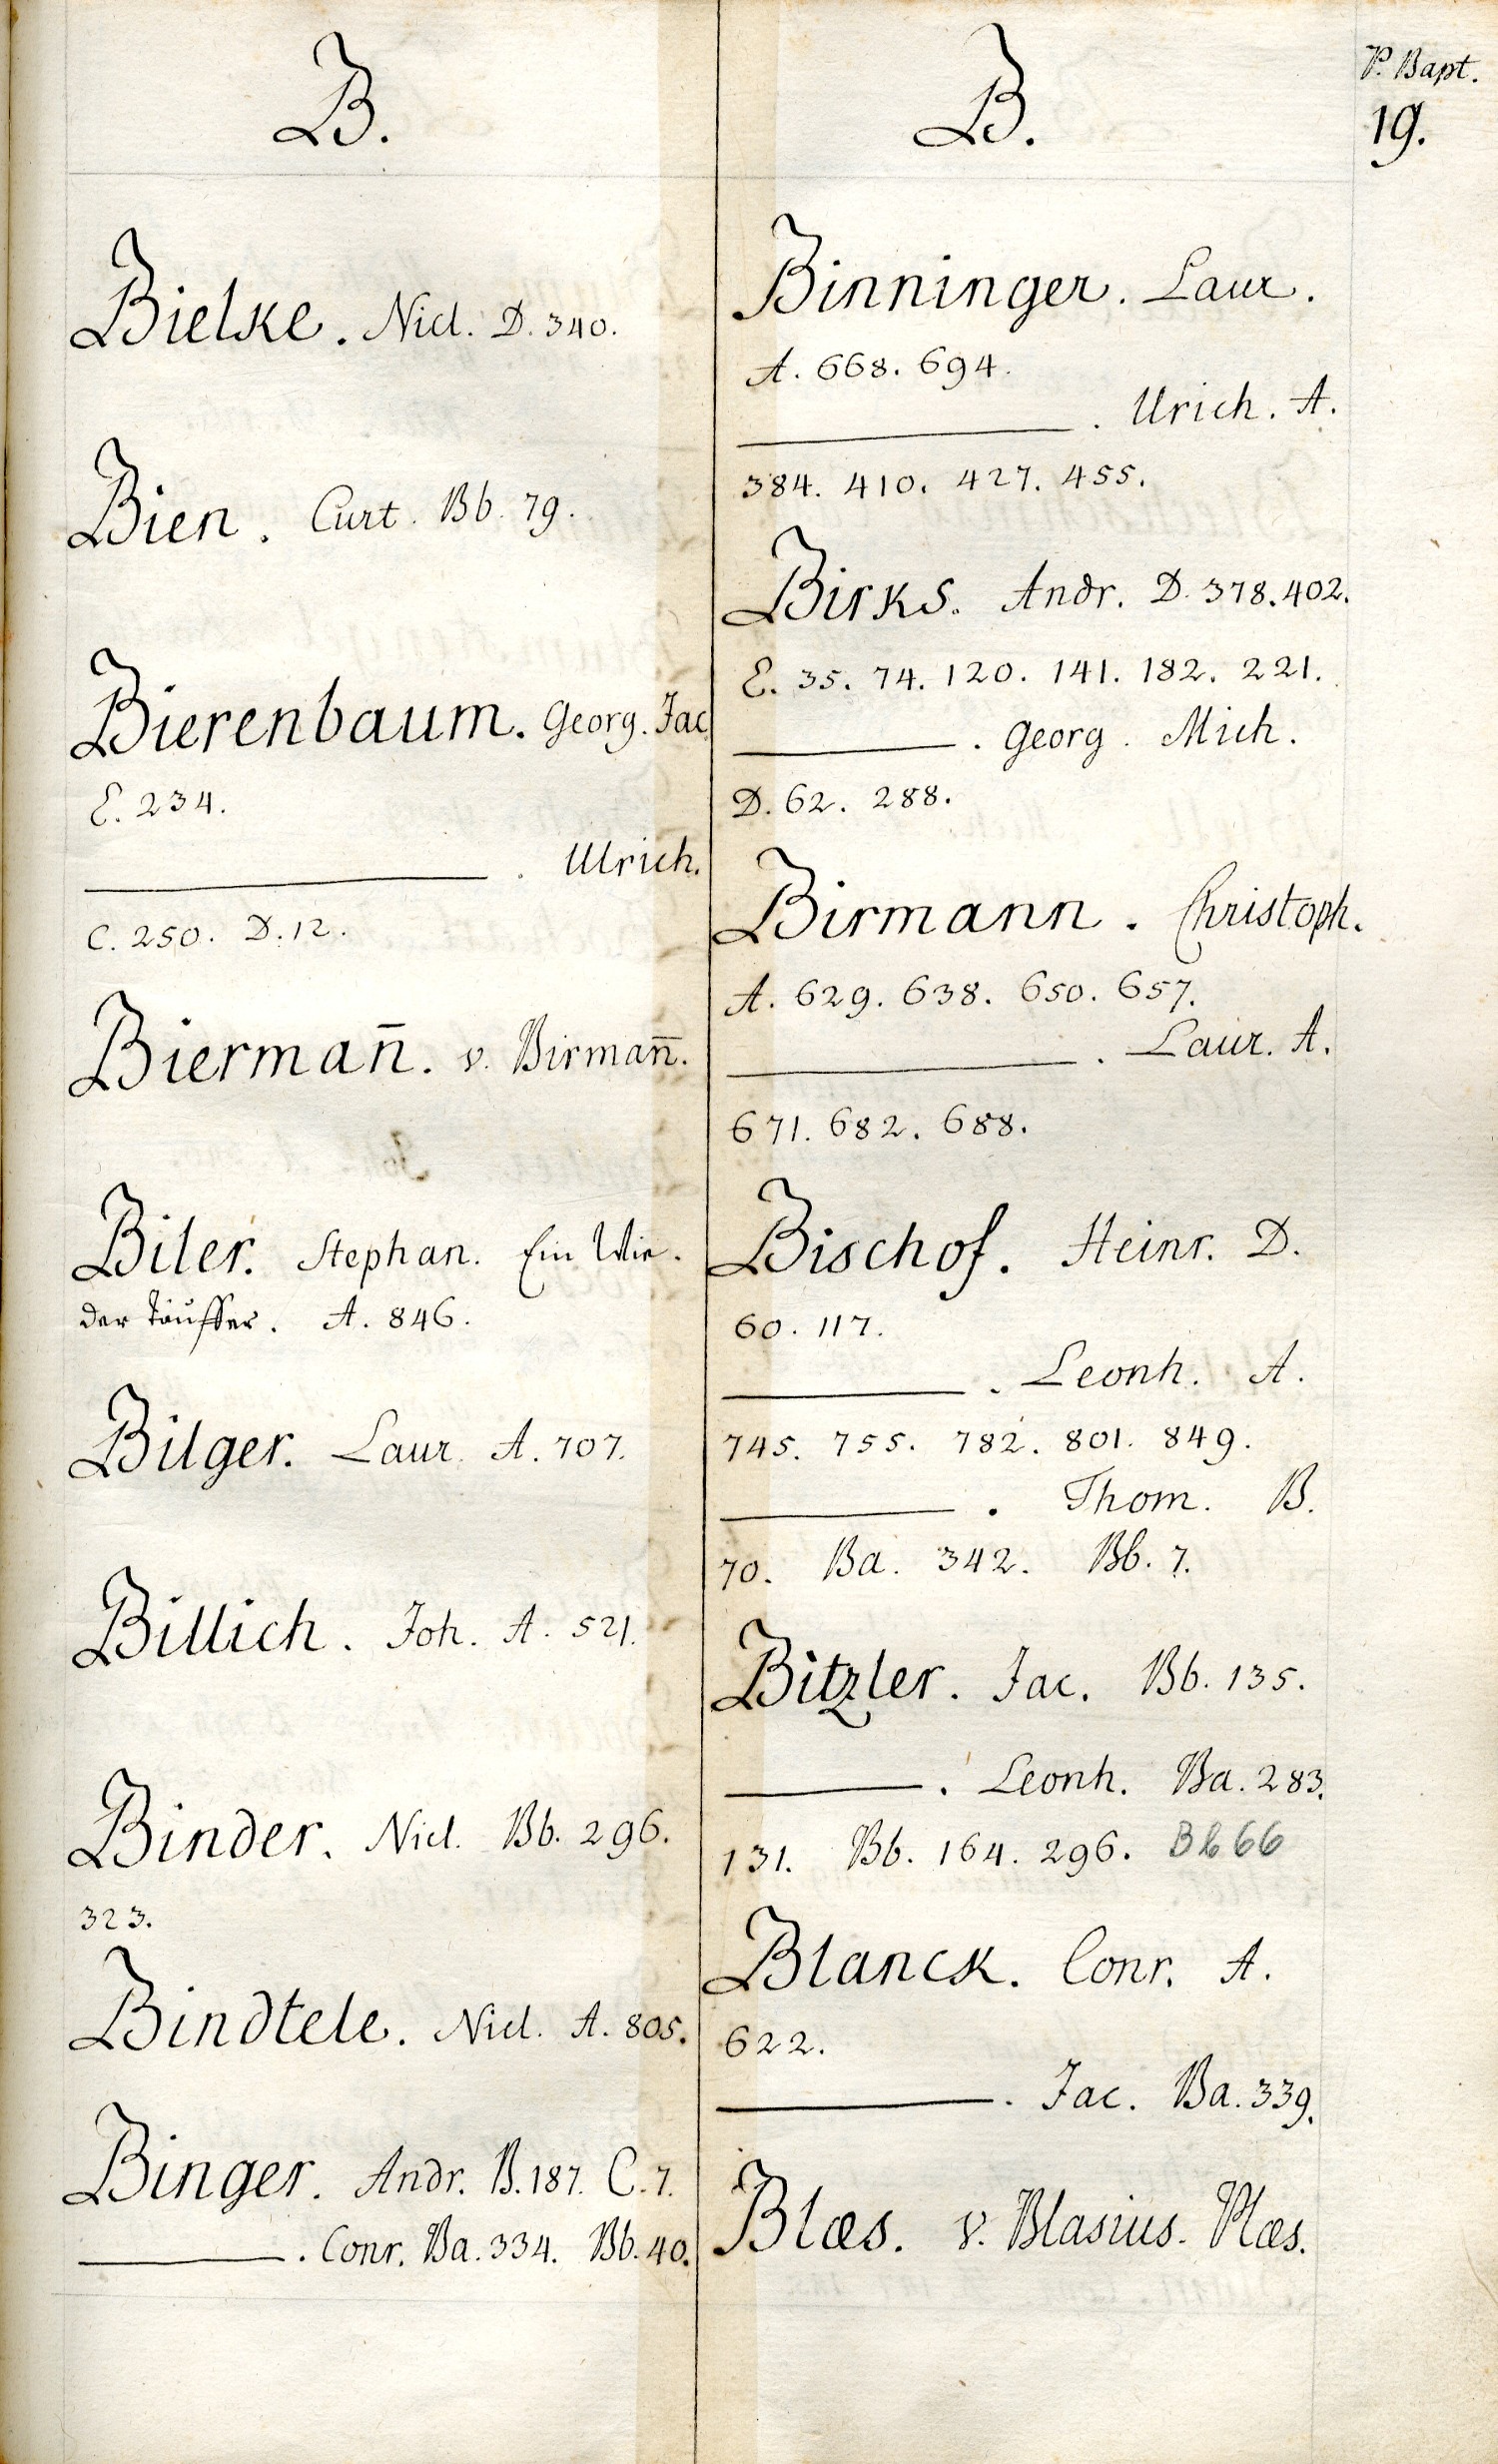 B.
Bielke. Nicl. D. 340.
Bien. Curt. Bb. 79.
Bierenbaum. Georg. Jac.
E. 234.
———. Ulrich.
C. 250. D. 12.
Biermañ. v. Birmañ.
Biler. Stephan. Ein Wie-
der Täuffer. A. 846.
Bilger. Laur. A. 707.
Billich. Joh. A. 521.
Binder. Nicl. Bb. 296.
323.
Bindtele. Nicl. A. 805.
Binger. Andr. B. 187. C. 7.
———. Conr. Ba. 334. Bb. 40.
B.
P. Bapt.
19.
Binninger. Laur.
A. 668. 694.
———. Urich. A.
384. 410. 427. 455.
Birks. Andr. D. 378. 402.
E. 35. 74. 120. 141. 182. 221.
———. Georg. Mich.
D. 62. 288.
Birmann. Christoph.
A. 629. 638. 650. 657.
———. Laur. A.
671. 682. 688.
Bischof. Heinr. D.
60. 117.
———. Leonh. A.
745. 755. 782. 801. 849.
———. Thom. B.
70. Ba. 342. Bb. 7.
Bitzler. Jac. Bb. 135.
———. Leonh. Ba. 283.
131. Bb. 164. 296. Bb 66
Blanck. Conr. A.
622.
———. Jac. Ba. 339.
Blæs. v. Blasius. Plæs.